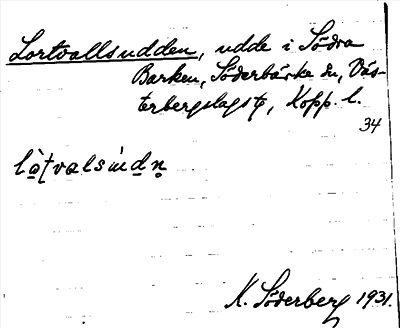 Lortvallsudden, udde i Södra
Barken, Söderbärke sn, Väs-
terbergslags tg, Kopp. l.
34
K. Söderberg 1931.